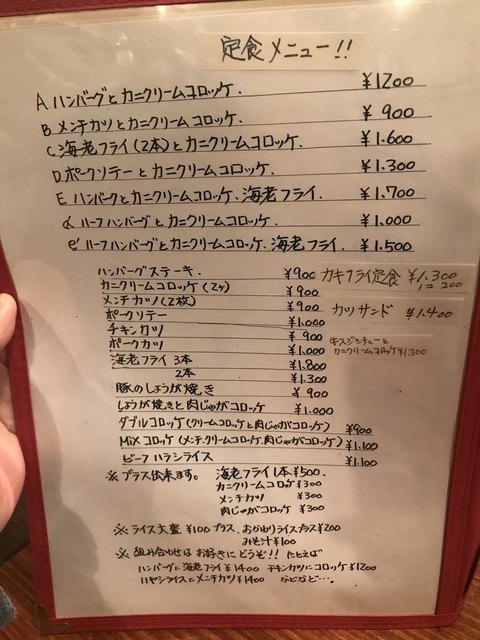 定食メニュー!!
A ハンバーグとカニクリームコロッケ. ¥1200
B メンチカツとカニクリームコロッケ. ¥900
C 海老フライ(2本)とカニクリームコロッケ. ¥1.600
D ポークソテーとカニクリームコロッケ. ¥1.300
E ハンバーグとカニクリームコロッケ. 海老フライ. ¥1.700
d' ハーフハンバーグとカニクリームコロッケ. ¥1.000
e' ハーフハンバーグとカニクリームコロッケ. 海老フライ. ¥1.500
ハンバーグステーキ. ¥900
カニクリームコロッケ(2ヶ) ¥900
メンチカツ(2枚) ¥900
ポークソテー ¥1.000
チキンカツ ¥900
ポークカツ ¥1.000
海老フライ 3本 ¥1.800
2本 ¥1.300
豚のしょうが焼き ¥900
しょうが焼きと肉じゃがコロッケ ¥1.000
ダブルコロッケ(クリームコロッケと肉じゃがコロッケ) ¥900
Mixコロッケ(メンチ.クリームコロッケ.肉じゃがコロッケ) ¥1.100
ビーフハヤシライス ¥1.100
カキフライ定食 ¥1.300
1コ 200
カツサンド ¥1.400
キスジンチューと
カニクリームコロッケ ¥1.300
※ プラス出来ます。 海老フライ1本 ¥500.
カニクリームコロッケ ¥300
メンチカツ ¥300
肉じゃがコロッケ ¥300
※ ライス大盛 ¥100プラス. おかわりライスプラス¥200
みそ汁¥100
※ 組み合わせは お好きにどうぞ!! たとえば
ハンバーグに海老フライ ¥1400 チキンカツにコロッケ ¥1200
ハヤシライスにメンチカツ ¥1400 などなど…。